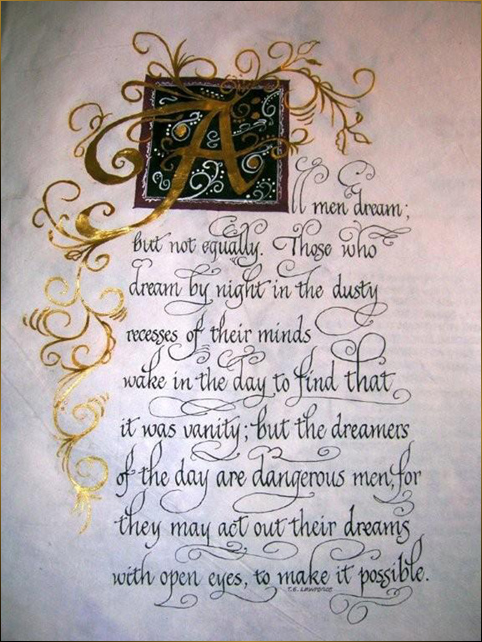 All men dream;
but not equally. Those who
dream by night in the dusty
recesses of their minds
wake in the day to find that
it was vanity; but the dreamers
of the day are dangerous men, for
they may act out their dreams
with open eyes, to make it possible.
T.E. LAWRENCE